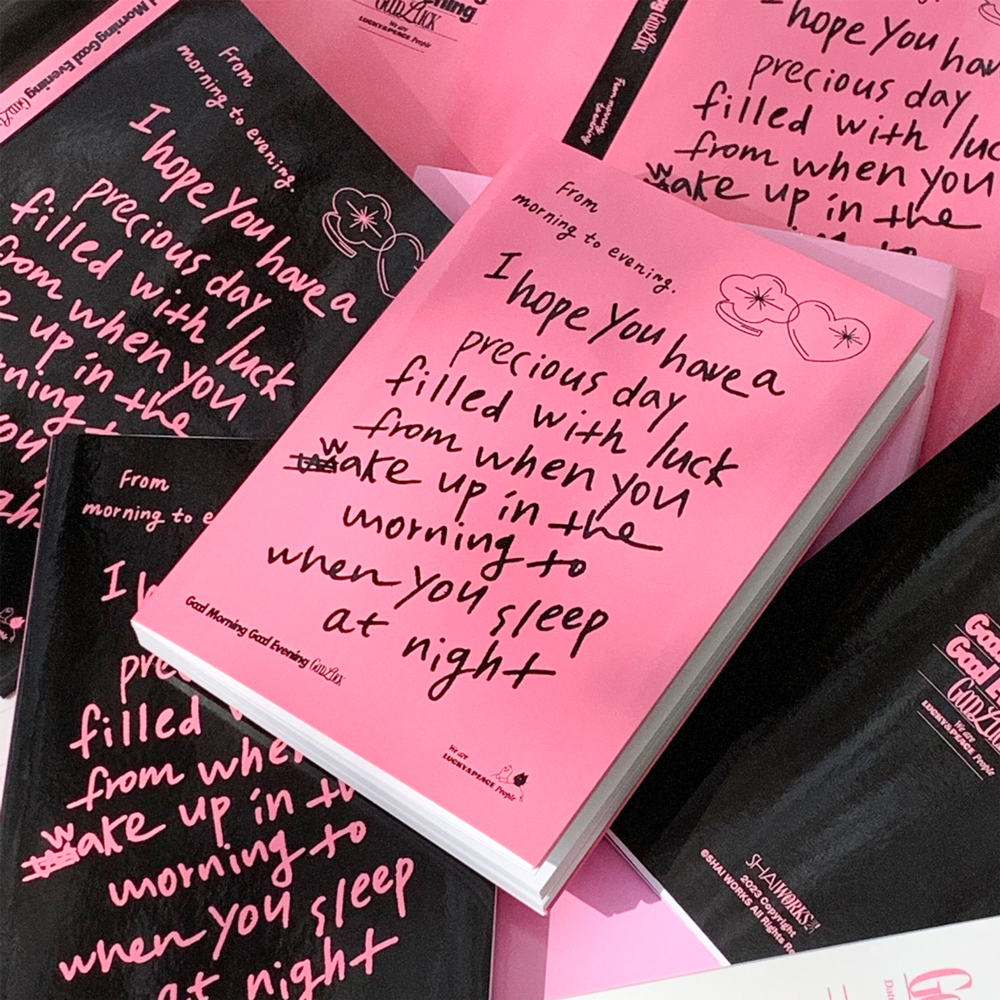 From
morning to evening.
I hope you have a
precious day
filled with luck
from when you
wake up in the
morning to
when you sleep
at night
Good Morning Good Evening Good Luck
We are
LUCKY&PEACE People
Morning Good Evening Good Luck
From
morning to evening.
I hope you have a
precious day
filled with luck
from when you
up in the
Good Luck
We are
LUCKY&PEACE People
From morning
to evening
hope you
precious day
filled with
from when you
wake up in the
From
morning to
I
filled
from when
wake up in
morning to
when you sleep
at night
Good
Good
We are
LUCKY&PEACE People
SHAIWORKS
2023 Copyright
©SHAI WORKS All Rights